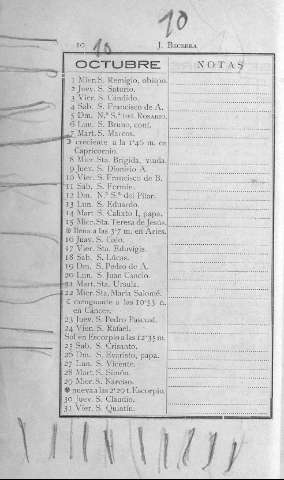 10
10 10 J. Becerra
OCTUBRE NOTAS
1 Mier. S. Remigio, obispo.
2 Juev. S. Saturio.
3 Vier. S. Cándido.
4 Sab. S. Francisco de A.
5 Dm. N.ª S.ª del Rosario.
6 Lun. S. Bruno, conf.
7 Mart. S. Marcos.
creciente a la 1'46 m. en
Capricornio.
8 Mier. Sta. Brígida, viuda.
9 Juev. S. Dionisio A.
10 Vier. S. Francisco de B.
11 Sab. S. Fermín.
12 Dm. N.ª S.ª del Pilar.
13 Lun. S. Eduardo.
14 Mart S. Calixto I, papa.
15 Mier. Sta. Teresa de Jesús.
llena a las 5'7 m. en Aries.
16 Juev. S. Galo.
17 Vier. Sta. Eduvigis.
18 Sab. S. Lúcas.
19 Dm. S. Pedro de A.
20 Lun. S. Juan Cancio.
21 Mart. Sta. Ursula.
22 Mier. Sta. María Salomé.
menguante a las 10'53 n.
en Cáncer.
23 Juev. S. Pedro Pascual.
24 Vier. S. Rafael.
Sol en Escorpio a las 12'35 m.
25 Sab. S. Crisanto.
26 Dm. S. Evaristo, papa.
27 Lun. S. Vicente.
28 Mart. S. Simón.
29 Mier. S. Narciso.
nueva a las 2'29 t. Escorpio.
30 Juev. S. Claudio.
31 Vier. S. Quintín.